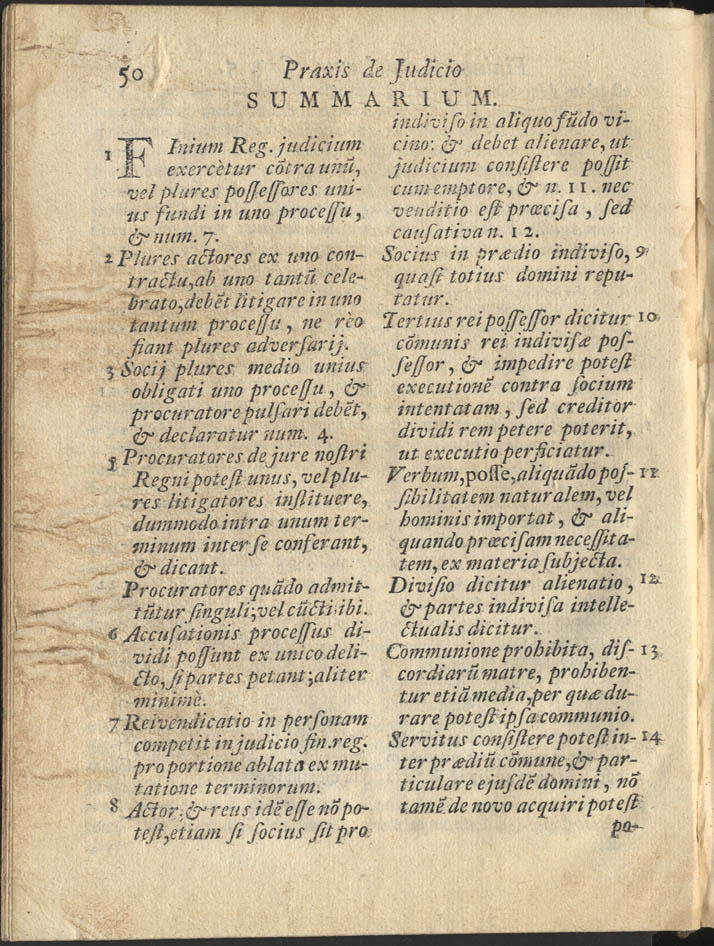 50 Praxis de Judicio
SUMMARIUM.
1 FInium Reg. judicium
exercètur cōtra unū,
vel plures possessores uni-
us fundi in uno processu,
& num. 7.
2 Plures actores ex uno con-
tractu, ab uno tantū cele-
brato, debēt litigare in uno
tantum processu, ne reo
fiant plures adversarij.
3 Socij plures medio unius
obligati uno processu, &
procuratore pulsari debēt,
& declaratur num. 4.
5 Procuratores de jure nostri
Regni potest unus, vel plu-
res litigatores instituere,
dummodo intra unum ter-
minum inter se conferant,
& dicant.
Procuratores quādo admit-
tūtur singuli; vel cūcti ibi.
6 Accusationis processus di-
vidi possunt ex unico deli-
cto, si partes petant; aliter
minimè.
7 Reivendicatio in personam
competit in judicio fin. reg.
pro portione ablata ex mu-
tatione terminorum.
8 Actor, & reus idē esse nō po-
test, etiam si socius sit pro
indiviso in aliquo fūdo vi-
cino: & debet alienare, ut
judicium consistere possit
cum emptore, & n. 11. nec
venditio est præcisa, sed
causativa n. 12.
Socius in prædio indiviso, 9
quasi totius domini repu-
tatur.
Tertius rei possessor dicitur 10
cōmunis rei indivisæ pos-
sessor, & impedire potest
executionē contra socium
intentatam, sed creditor
dividi rem petere poterit,
ut executio perficiatur.
Verbum, posse, aliquādo pos- 11
sibilitatem naturalem, vel
hominis importat, & ali-
quando præcisam necessita-
tem, ex materia subjecta.
Divisio dicitur alienatio, 12
& partes indivisa intelle-
ctualis dicitur.
Communione prohibita, dis- 13
cordiarū matre, prohiben-
tur etiā media, per quæ du-
rare potest ipsa communio.
Servitus consistere potest in- 14
ter prædiū cōmune, & par-
ticulare ejusdē domini, nō
tamē de novo acquiri potest
po-